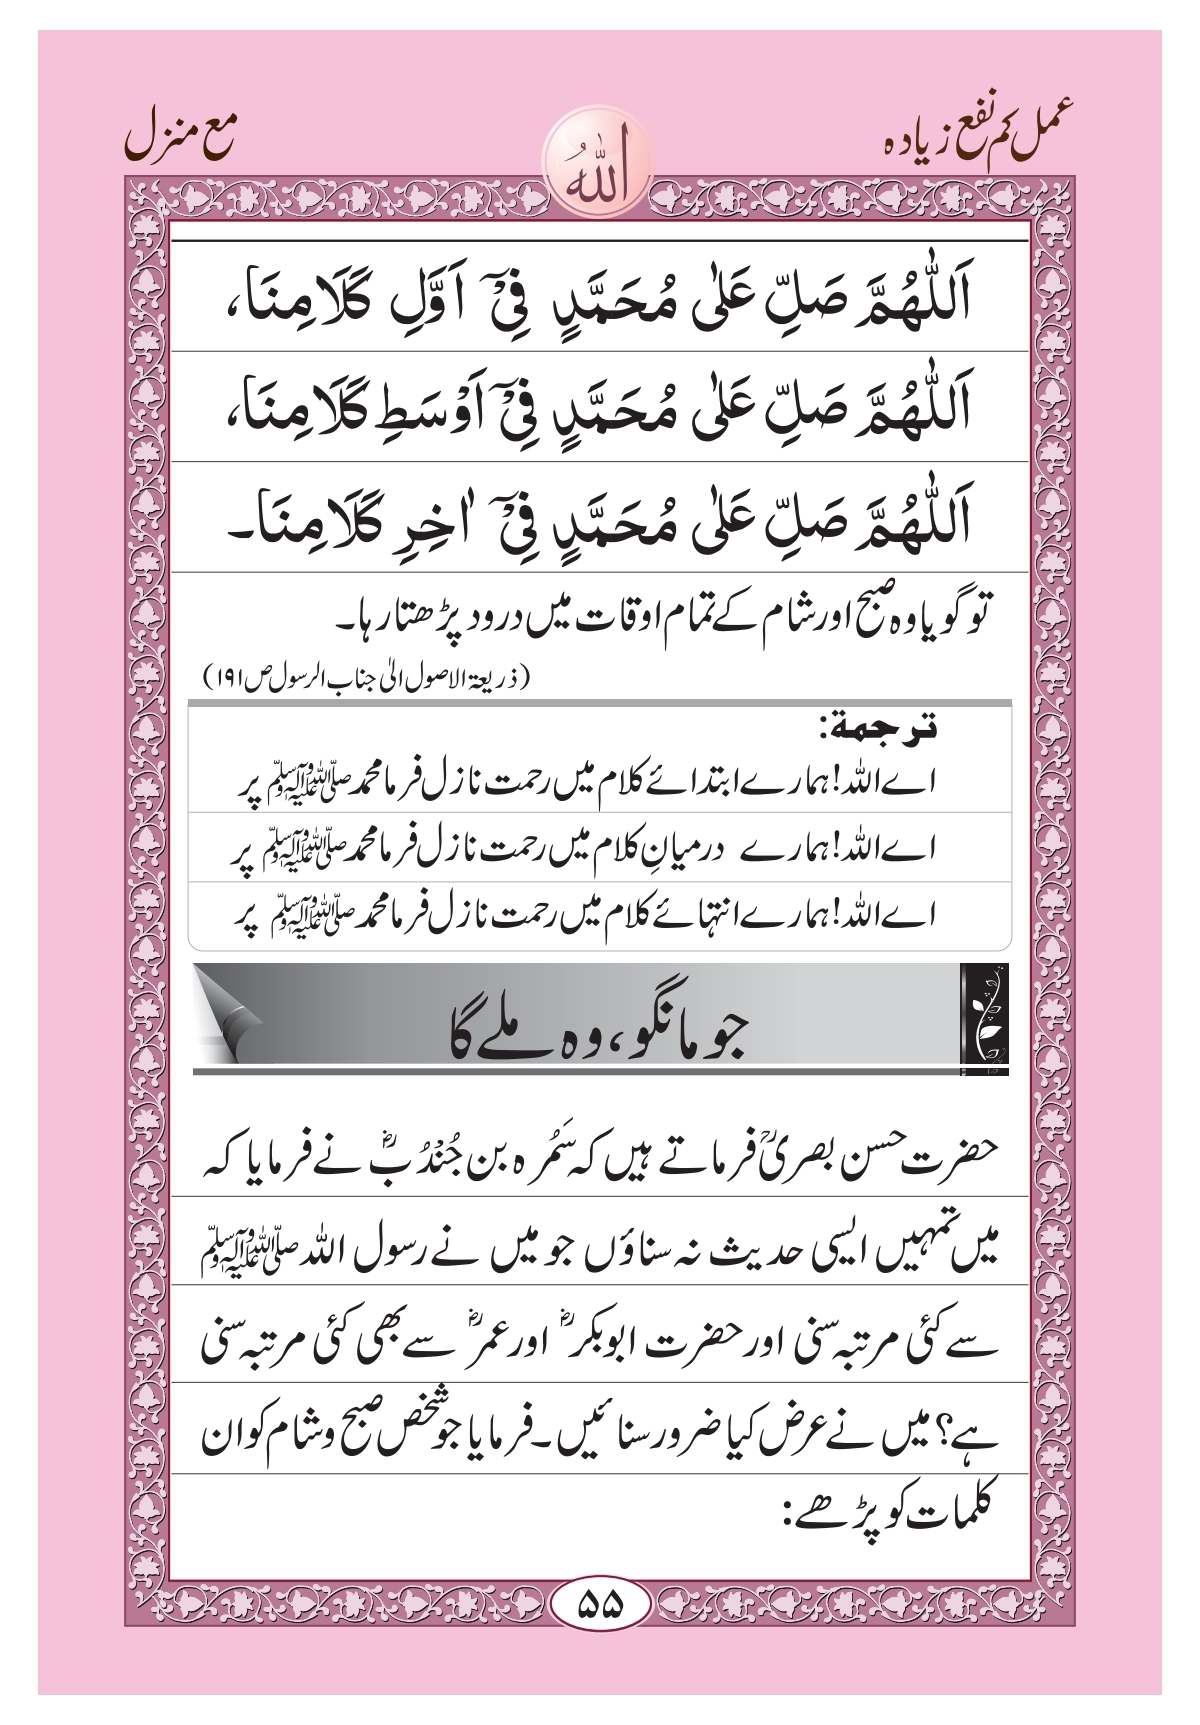 عمل کم نفع زیادہ
الله
مع منزل
اَللّٰهُمَّ صَلِّ عَلٰی مُحَمَّدٍ فِیْٓ اَوَّلِ کَلَامِنَا،
اَللّٰهُمَّ صَلِّ عَلٰی مُحَمَّدٍ فِیْٓ اَوْسَطِ کَلَامِنَا،
اَللّٰهُمَّ صَلِّ عَلٰی مُحَمَّدٍ فِیْٓ اٰخِرِ کَلَامِنَا۔
تو گویا وہ صبح اور شام کے تمام اوقات میں درود پڑھتا رہا۔
(ذریعۃ الاصول الیٰ جناب الرسول ص ۱۹۱)
ترجمة:
اے اللہ! ہمارے ابتدائے کلام میں رحمت نازل فرما محمد ﷺ پر
اے اللہ! ہمارے درمیانِ کلام میں رحمت نازل فرما محمد ﷺ پر
اے اللہ! ہمارے انتہائے کلام میں رحمت نازل فرما محمد ﷺ پر
جو مانگو، وہ ملے گا
حضرت حسن بصریؒ فرماتے ہیں کہ سَمُرہ بن جُنْدُبؓ نے فرمایا کہ
میں تمہیں ایسی حدیث نہ سناؤں جو میں نے رسول اللہ ﷺ
سے کئی مرتبہ سنی اور حضرت ابوبکرؓ اور عمرؓ سے بھی کئی مرتبہ سنی
ہے؟ میں نے عرض کیا ضرور سنائیں۔ فرمایا جو شخص صبح و شام کو ان
کلمات کو پڑھے:
۵۵